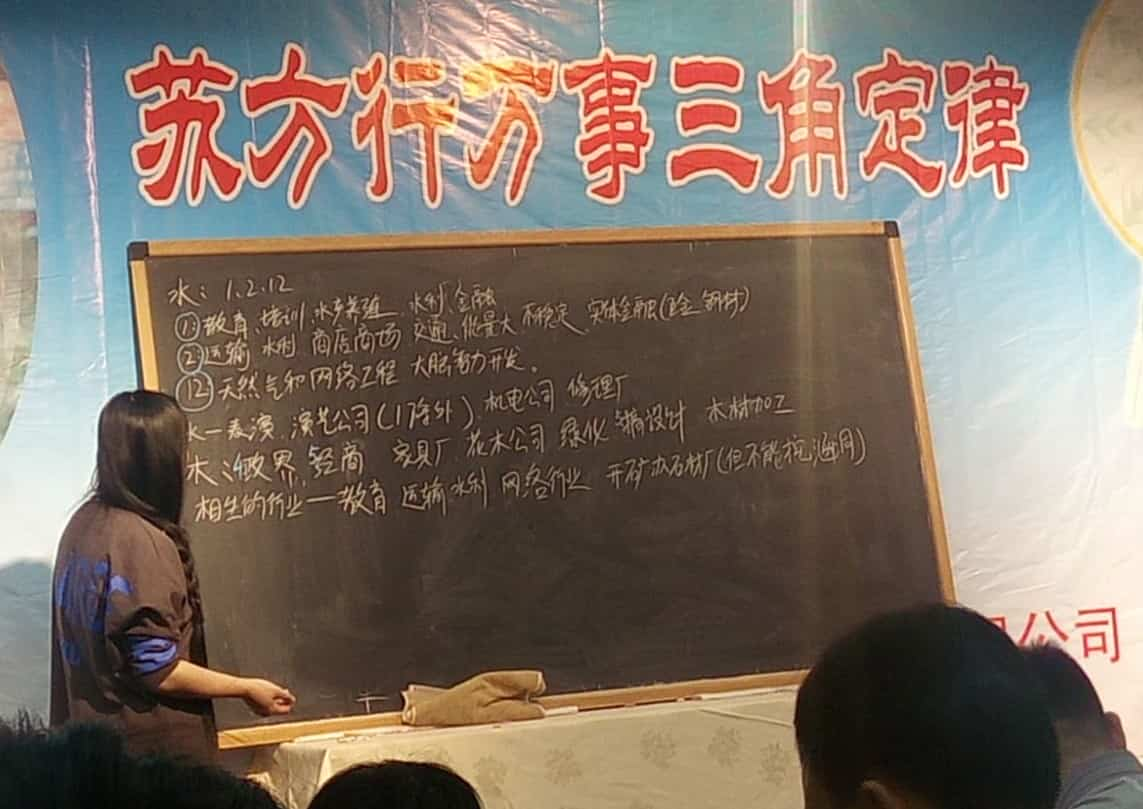 苏方行万事三角定律
水：1、2、12
① 教育、培训 水产养殖、水利 金融
② 运输 水利 商店商场 交通、能量大 不稳定 实体金融(五金 钢材)
⑫ 天然气和网络工程 大脑智力开发。
水一表演、演艺公司(1除外)、机电公司 修理厂
木：政界、经商 家具厂 花木公司 绿化 设计 木材加工
相生的行业一教育 运输 水利 网络行业 开矿 石材厂(但不能挖 用)
公司